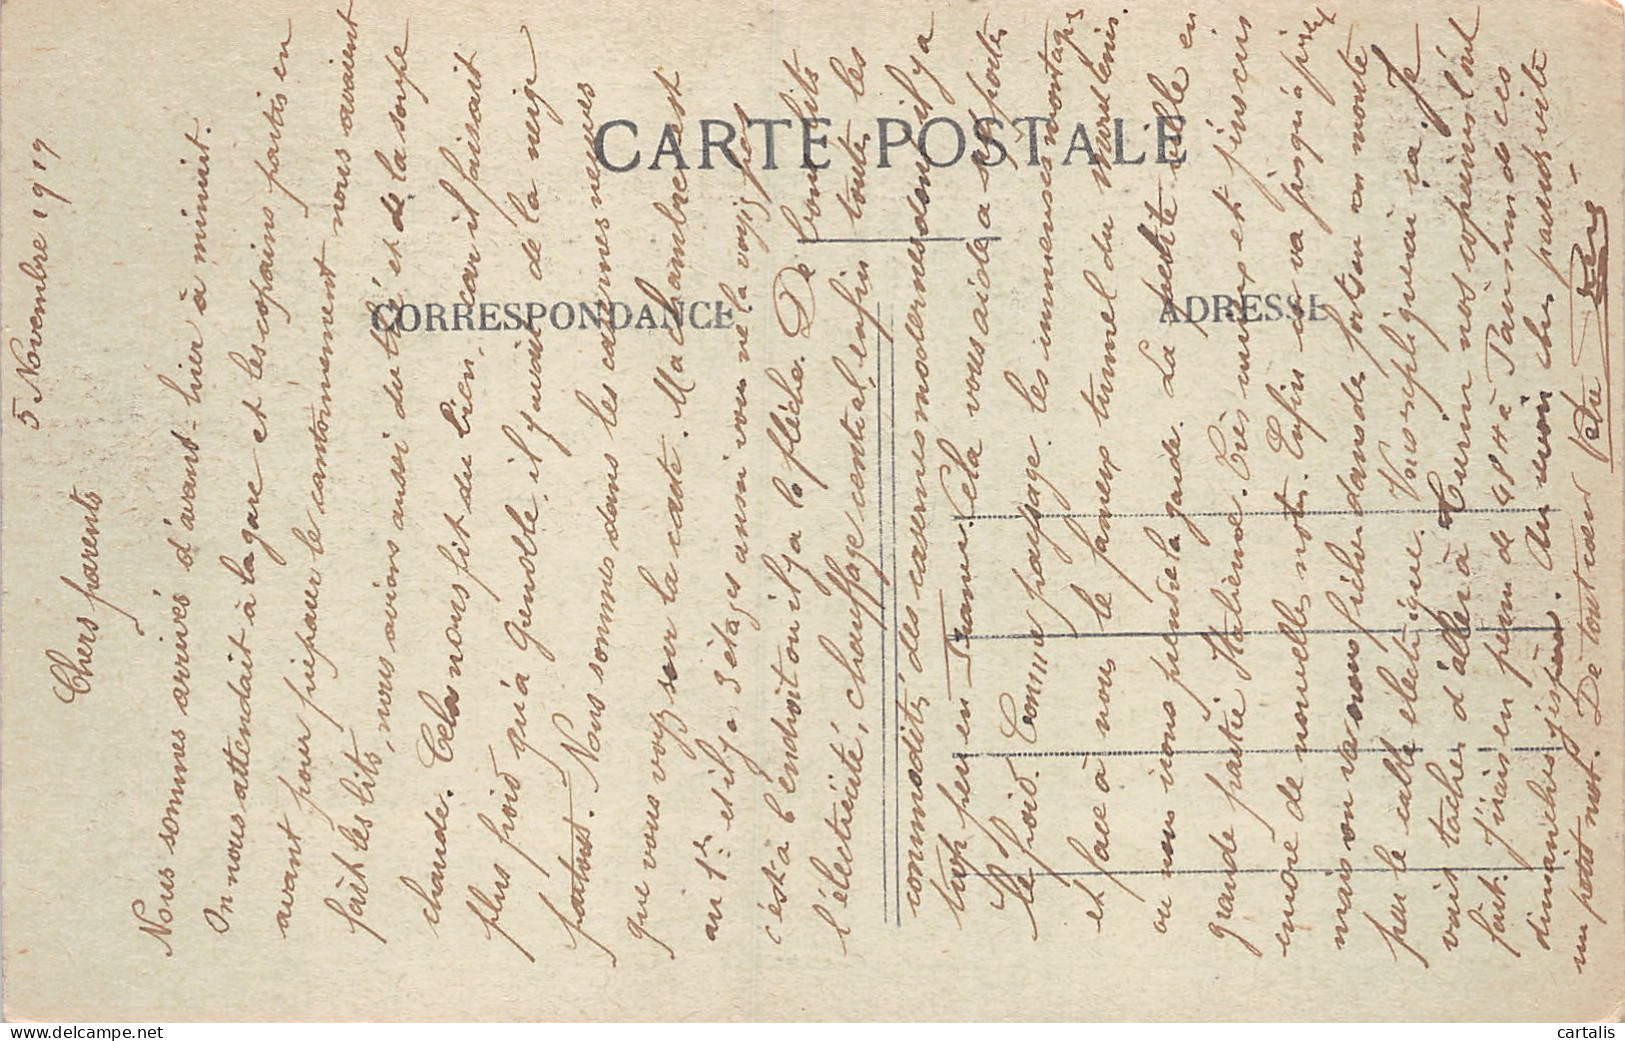 CARTE POSTALE
CORRESPONDANCE
ADRESSE
5 Novembre 1919
Chers parents
Nous sommes arrivés d'avant-hier à minuit.
On nous attendait à la gare et les copains partis en
avant pour préparer le cantonnement nous avaient
fait les lits, nous avions aussi du thé et de la soupe
chaude. Cela nous fit du bien, car il faisait
plus froid qu'à Grenoble, il y avait de la neige
partout. Nous sommes dans les casernes neuves
que vous voyez sur la carte. Ma chambre est
au 1er et il y a 3 étages aussi vous ne la voyez pas
c'est à l'endroit où il y a la flèche. De bons lits
l'électricité, chauffage central, enfin toutes les
commodités des casernes modernes dont il y a
trop peu en France. Cela vous aide à supporter
le froid. Comme paysage les immenses montagnes
et face à nous le fameux tunnel du
où nous irons prendre la garde. La petite ville en
grande partie Italienne. Très vieux et
encore de nouvelles notes. Enfin ça va jusqu'à
mais on va nous dans des forts où on monte
par le cable électrique. Vous expliquerai ça. Je
vais tacher d'aller à Turin nos copains l'ont
fait. J'irais en perm de 48 H à Paris un de ces
dimanches j'espère. Au revoir chers parents vite
un petit mot. De tout cœur